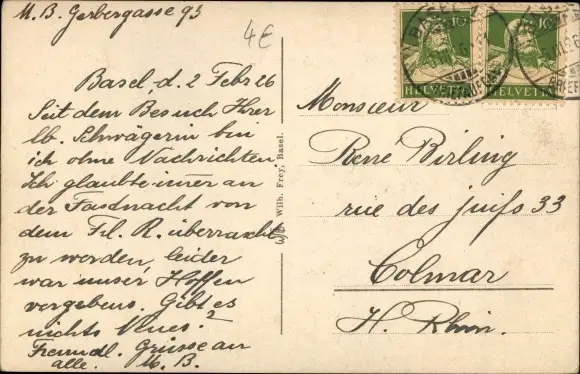 M. B. Gerbergasse 93
4€
Basel, d. 2 Febr 26
Seit dem Besuch Ihrer
lb. Schwägerin bin
ich ohne Nachrichten.
Ich glaubte immer an
der Fasdnacht von
dem Frl. R. überrascht
zu werden, leider
war unser Hoffen
vergebens. Gibt es
nichts Neues?
Freundl. Grüsse an
alle. M. B.
Wilh. Frey, Basel.
BASEL
BRIEFAUFGABE
10 10
HELVETIA HELVETIA
Monsieur
René Birling
rue des juifs 33
Colmar
H. Rhin.